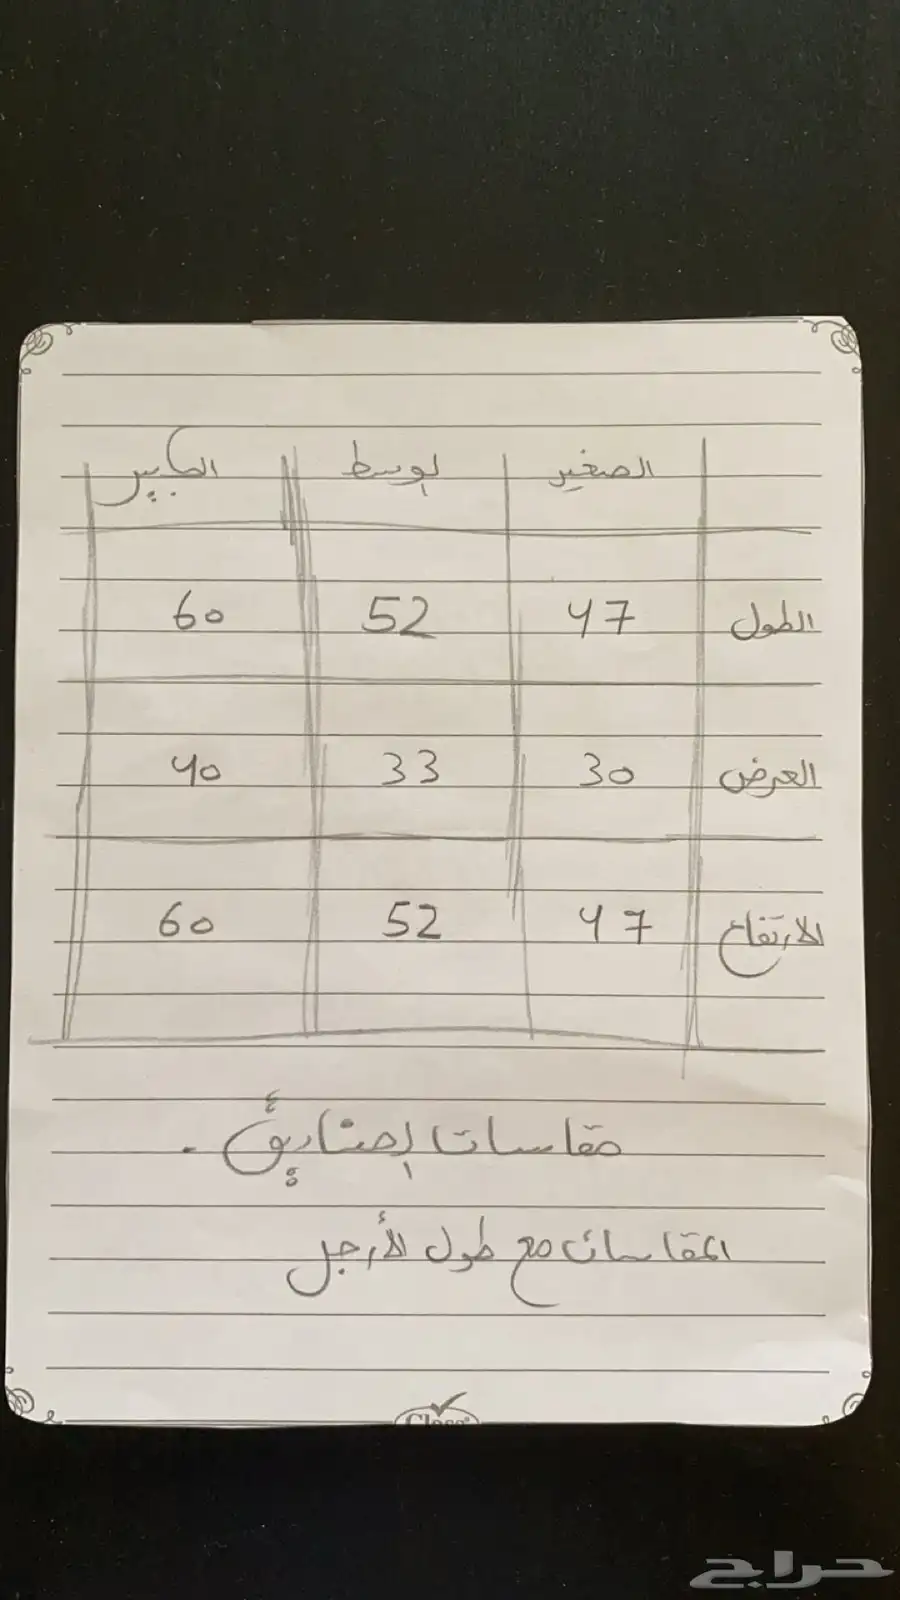 الصغير الوسط الكبير
الطول 47 52 60
العرض 30 33 40
الارتفاع 47 52 60
مقاسات الصناديق .
المقاسات مع طول الأرجل
Class
حراج